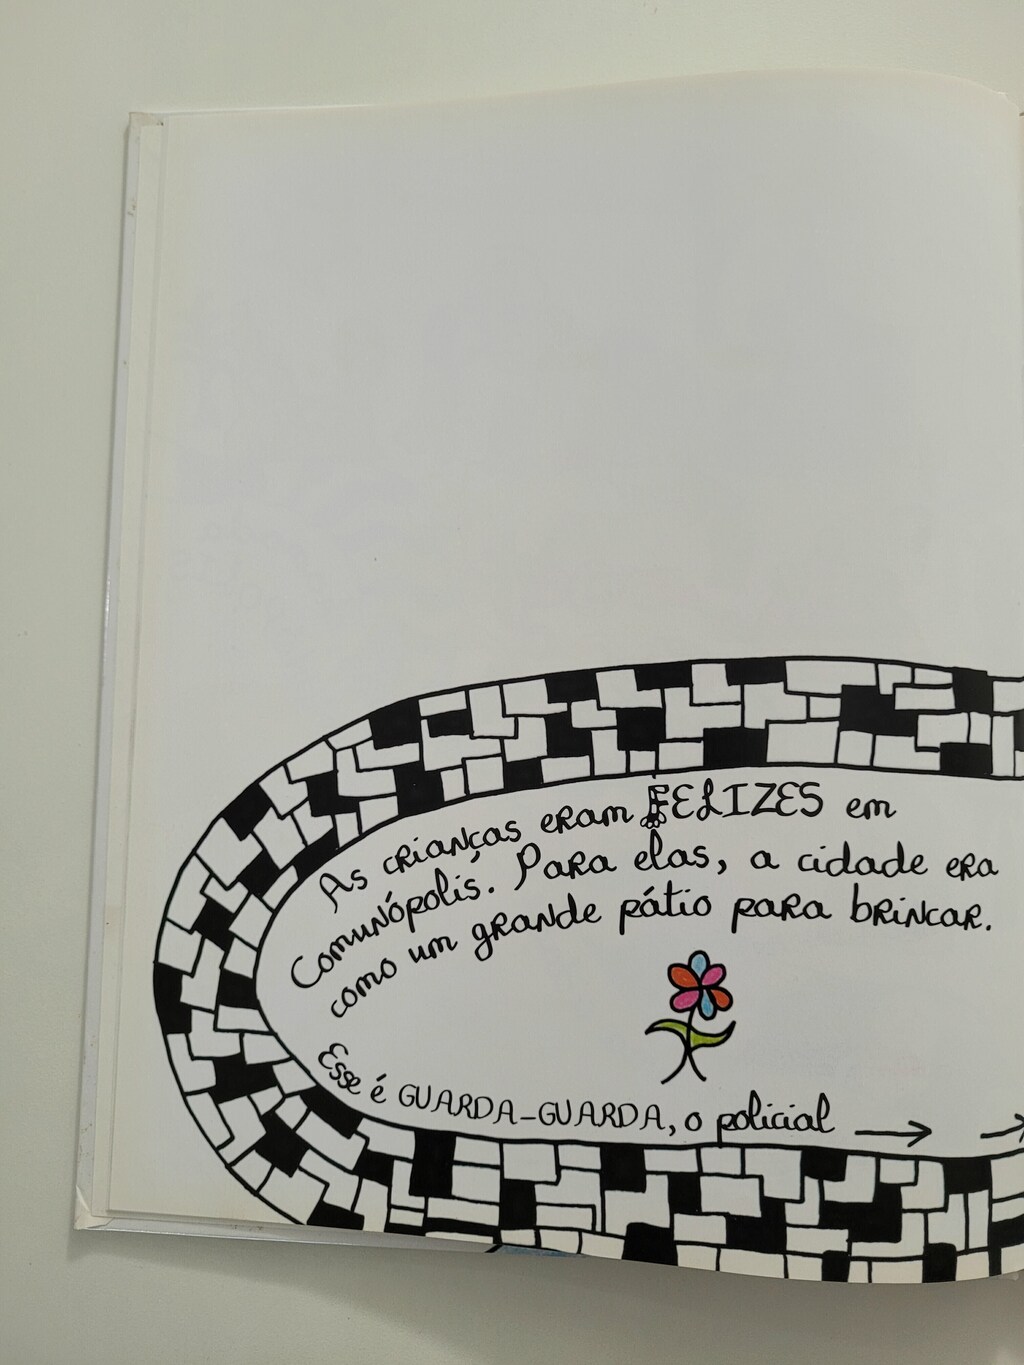 As crianças eram FELIZES em
Comunópolis. Para elas, a cidade era
como um grande pátio para brincar.
Esse é GUARDA-GUARDA, o policial